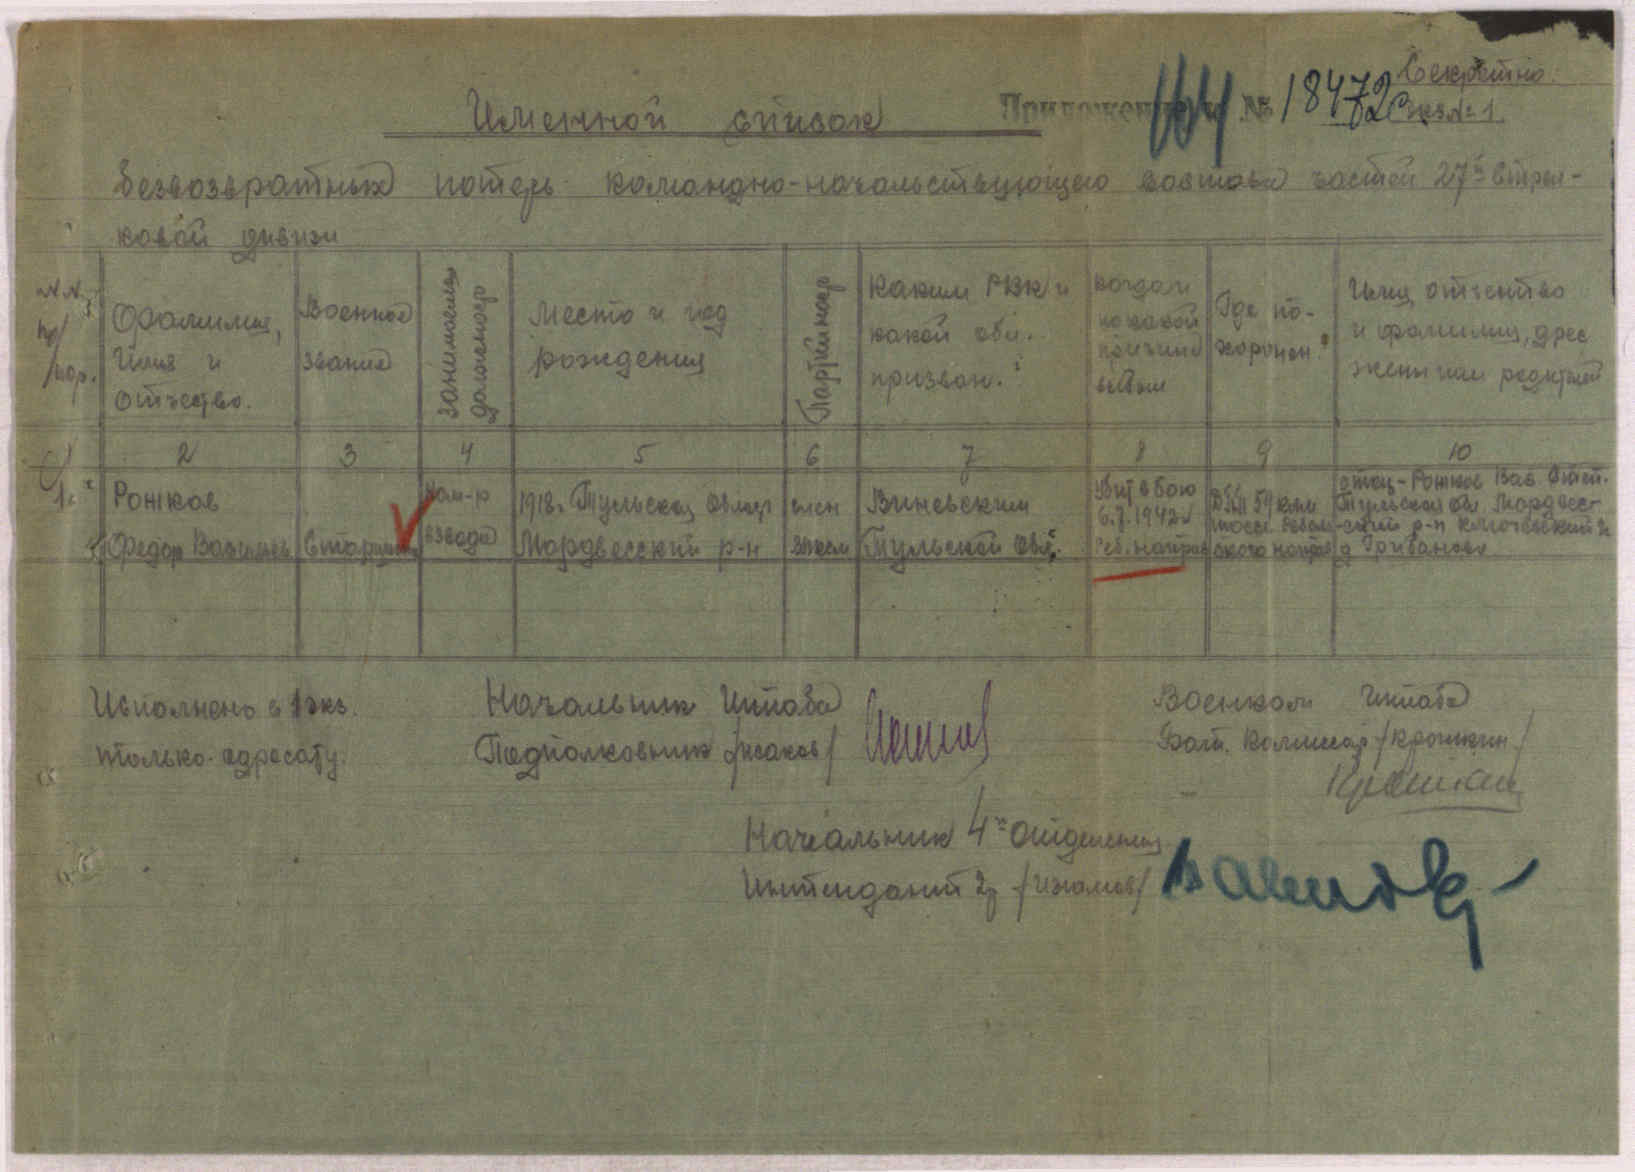 Секретно.
Экз № 1.
№ 18472с
Именной список
безвозвратных потерь командно-начальствующего состава частей 27й стрел-
ковой дивизи
№№ п/пор.
Фамилия,
Имя и
отчество.
Военное
звание
занимаемая
должность
Место и год
рождения
Партийность
Каким РВК и
какой обл.
призван.
когда и
по какой
причине
выбыл
Где по-
хоронен.
Имя, отчество
и фамилия, адрес
жены или родителей
2 3 4 5 6 7 8 9 10
1.
Рожков
Федор Васильев
Старшина
Ком-р
взвода
1918г Тульская область
Мордвесский р-н
член
Виневским
Тульской обл.
Убит в бою
6.7.1942г
59 клм
отец - Рожков Вас. Степ.
Тульская обл Мордвес-
ский р-н
д Грибаново
Исполнено в 1 экз.
только адресату.
Начальник Штаба
Подполковник /Исаков/
Военком Штаба
Бат. Комиссар /Крошкин/
Начальник 4го отделения
Интендант 2р